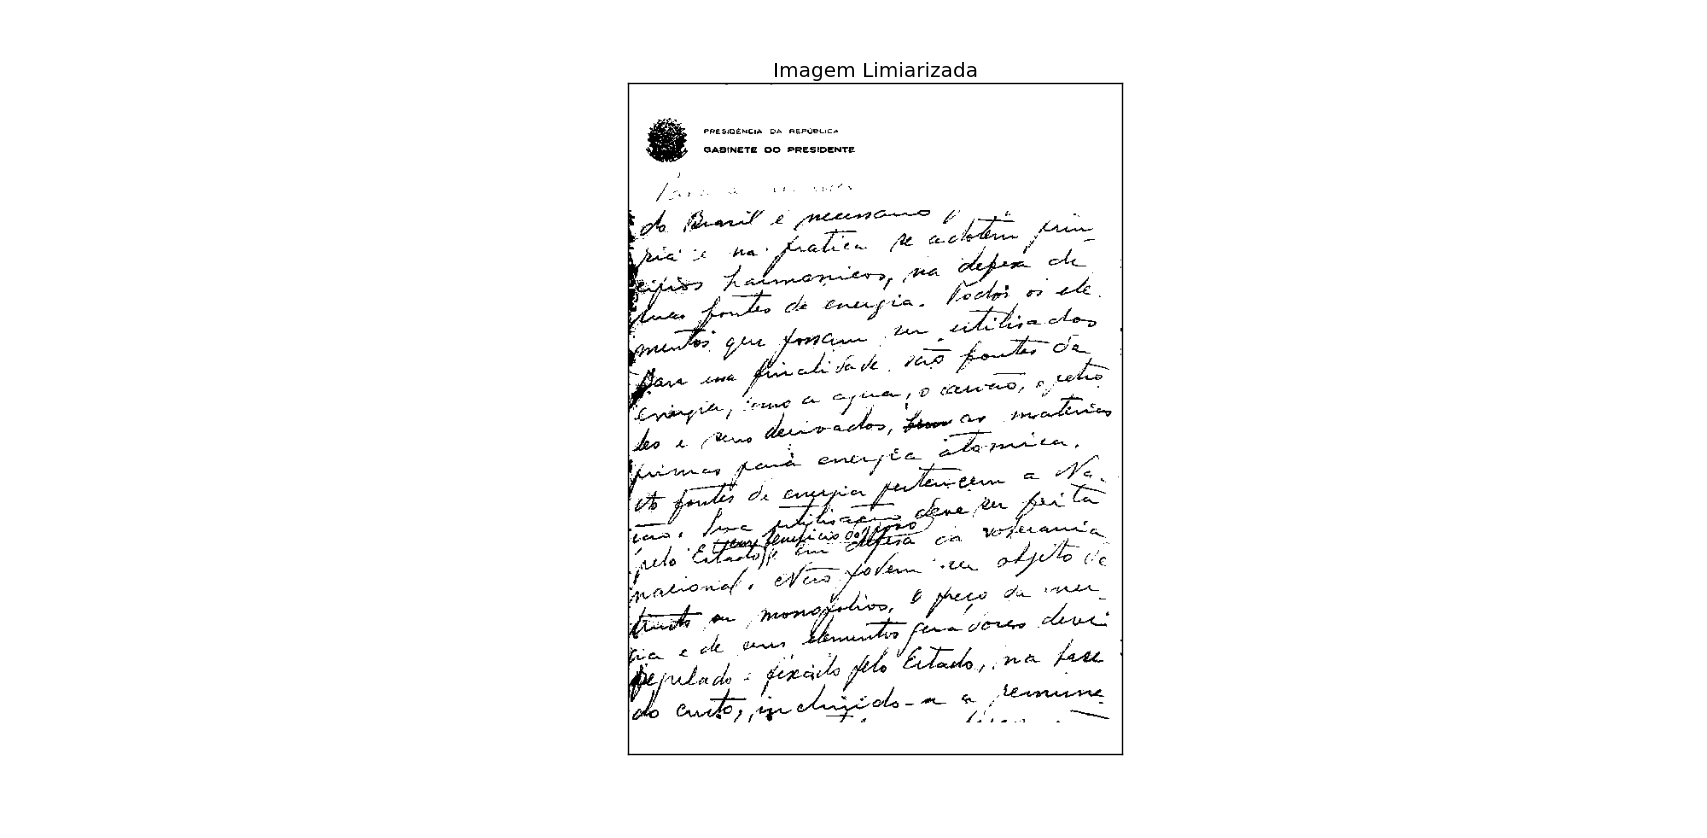 Imagem Limiarizada
PRESIDÊNCIA DA REPÚBLICA
GABINETE DO PRESIDENTE
Para a
do Brasil é necessario
ria e na pratica se adotem prin
cipios harmonicos, na defesa de
suas fontes de energia. Todos os ele
mentos que possam ser utilisados
para essa finalidade são fontes de
energia, como a agua, o carvão, o petro
leo e seus derivados, as materias
primas para energia atomica.
As fontes de energia pertencem a Na-
ção. Sua utilisação deve ser feita
em beneficio do povo
pelo Estado, em defesa da soberania
nacional. Não podem ser objeto de
trusts ou monopolios, o preço da ener_
gia e de seus elementos geradores deve
regulado e fixado pelo Estado, na base
do custo, incluindo-se a remune_